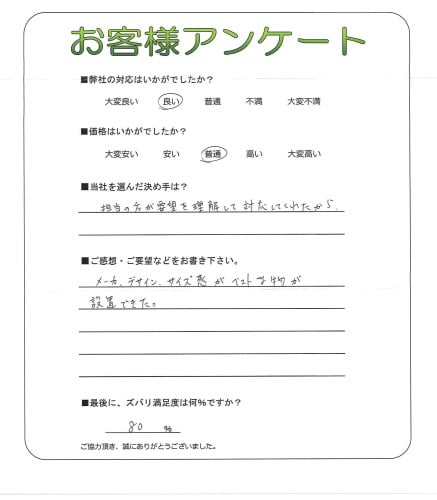 お客様アンケート
■弊社の対応はいかがでしたか?
大変良い 良い 普通 不満 大変不満
■価格はいかがでしたか?
大変安い 安い 普通 高い 大変高い
■当社を選んだ決め手は?
担当の方が要望を理解して対応してくれたから。
■ご感想・ご要望などをお書き下さい。
メーカ、デザイン、サイズ感がベストな物が
設置できた。
■最後に、ズバリ満足度は何%ですか?
80 %
ご協力頂き、誠にありがとうございました。